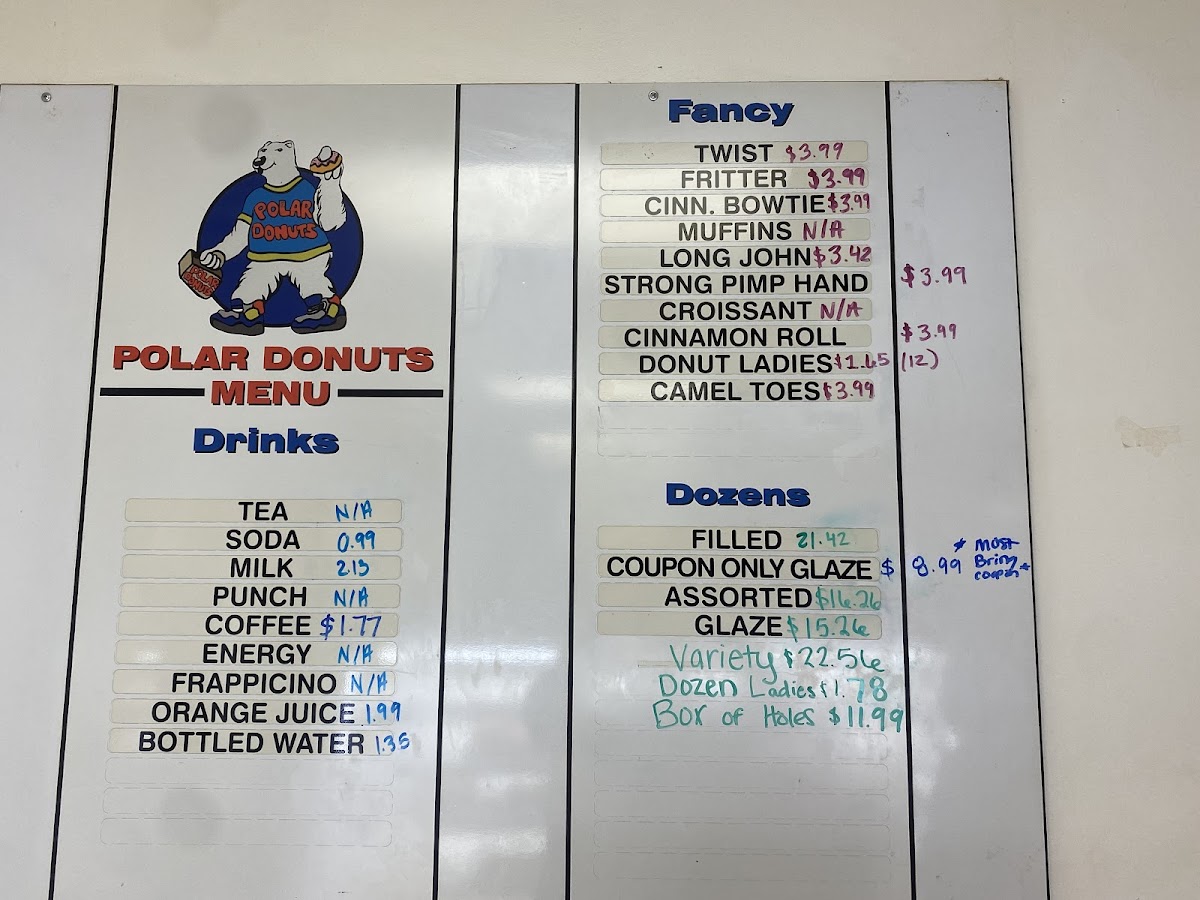 POLAR
DONUTS
POLAR
DONUTS
POLAR DONUTS
MENU
Drinks
TEA N/A
SODA 0.99
MILK 2.13
PUNCH N/A
COFFEE $1.77
ENERGY N/A
FRAPPICINO N/A
ORANGE JUICE 1.99
BOTTLED WATER 1.35
Fancy
TWIST $3.99
FRITTER $3.99
CINN. BOWTIE $3.99
MUFFINS N/A
LONG JOHN $3.42
STRONG PIMP HAND $3.99
CROISSANT N/A
CINNAMON ROLL $3.99
DONUT LADIES (12)
CAMEL TOES $3.99
Dozens
FILLED 21.42
COUPON ONLY GLAZE $ 8.99 * Must Bring coupon *
ASSORTED $16.26
GLAZE $15.26
Variety $22.56
Dozen Ladies $1.78
Box of Holes $11.99